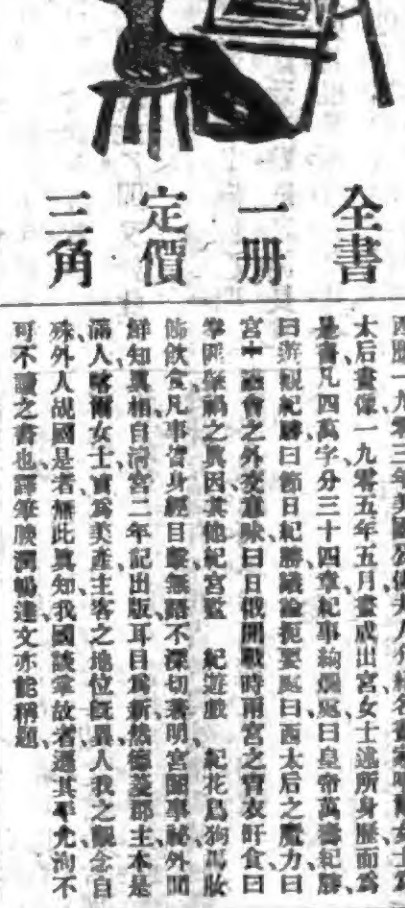 全書
一册
定價
三角
西歷一九零三年美國公使夫人介紹名畫家女士爲
太后畫像一九零五年五月畫成出宮女士述所身歷而爲
是書凡四萬字分三十四章紀事絢爛處曰皇帝萬壽紀勝
曰遊觀紀勝曰節日紀勝議論扼要處曰西太后之魔力曰
宮中 會之外交意味曰日俄開戰時兩宮之宵衣旰食曰
拳匪 禍之眞因其他紀宮監 紀遊戲 紀花鳥狗馬妝
飾飲食凡事皆身經目擊無語不深切著明宮闈事祕外間
鮮知眞相自淸宮二年記出版耳目爲新然德菱郡主本是
滿人 女士實爲美產主客之地位旣異人我之觀念自
殊外人覘國是者無此眞知我國談掌故者遜其平允洵不
可不讀之書也譯筆腴潤暢達文亦能稱題